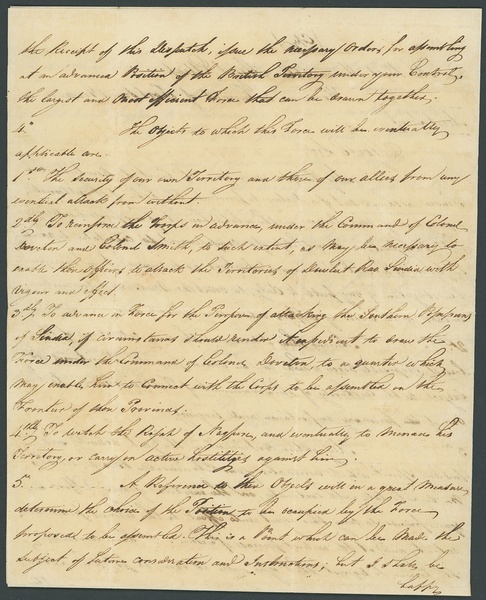 the Receipt of this Dispatch, issue the necessary Orders, for assembling
at an advanced Position of the British Territory under your Control,
the largest and most efficient Force that can be drawn together.
4. The Objects to which this Force will be eventually
applicable are.
1st The Security of our own Territory and those of our allies from any
eventual attack from without.
2dly To reinforce the Troops in advance, under the Command of Colonel
Doveton and Colonel Smith, to such extent, as may be necessary to
enable those Officers to attack the Territories of Dowlut Rao Sindia with
Vigour and effect.
3dly To advance in Force for the Purpose of attacking the Southern Possessions
of Sindia, if circumstances should render it expedient to draw the
Force under the Command of Colonel Doveton, to a quarter which
may enable him to Connect with the Corps to be assembled on the
Frontier of those Provinces.
4thly To watch the Rajah of Nagpore, and eventually to menace his
Territory, or carry on active Hostilities against him.
5. A Reference to these Objects will in a great measure,
determine the choice of the Position to be occupied by the Force
proposed to be assembled. This is a Point which can be made the
subject of future consideration and Instructions; but I shall be
happy